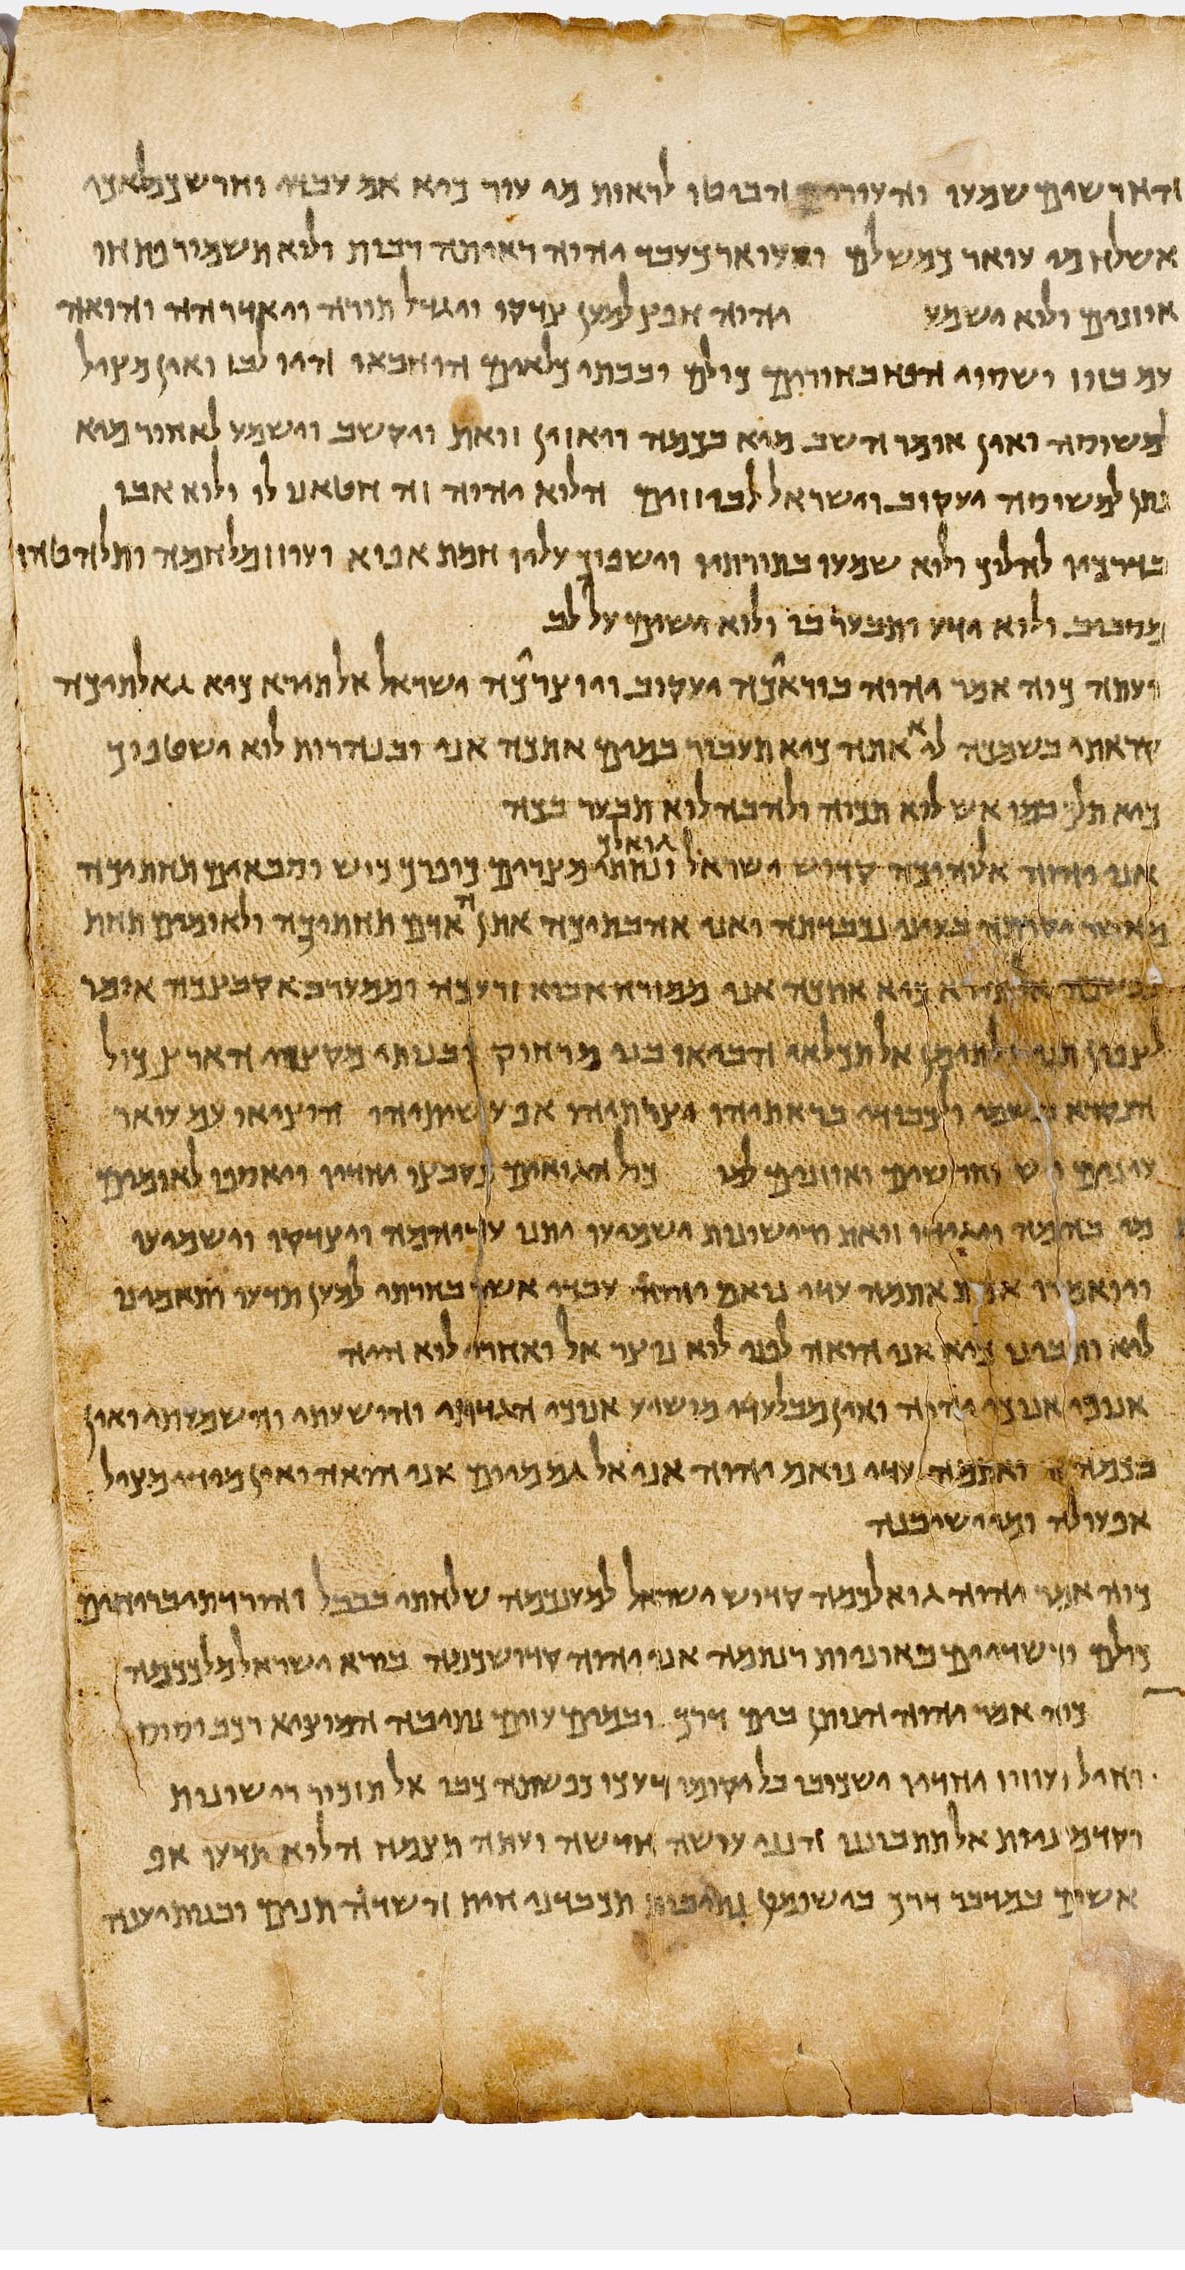 החרשים שמעו והעורים הביטו לראות מי עור כיא אם עבדי וחרש כמלאכי
אשלח מי עואר כמשלם ועואר כעבד יהוה ראיתה רבות ולוא תשמור פתחו
אוזנים ולוא ישמע יהוה חפץ למען צדקו יגדל תורה ויאדרהה והואה
עם בזוז ושסוי הפח בחורים כולם ובבתי כלאים החבאו היו לבז ואין מציל
למשוסה ואין אומר השב מיא בכמה ויאזין זואת ויקשב וישמע לאחור מיא
נתן למשיסה יעקוב וישראל לבוזזים הלוא יהוה זה חטאנו לו ולוא אבו
בדרכיו להלוך ולוא שמעו בתורתיו וישפוך עליו חמת אפוא ועזוז מלחמה ותלהטהו
מסביב ולוא ידע ותבער בו ולוא ישים על לב
ועתה כוה אמר יהוה בוראכה יעקוב ויוצרכה ישראל אל תירא כיא גאלתיכה
קראתי בשמכה ליא אתה כיא תעבור במים אתכה אני ובנהרות לוא ישטפוך
כיא תלך במו אש לוא תכוה ולהבה לוא תבער בכה
אני יהוה אלוהיכה קדוש ישראל גואלך ונתתי מצרים כופרך כוש וסבאים תחתיכה
מאשר יקרתה בעיני נכבדתה ואני אהבתיכה אתן האדם תחתיכה ולאומים תחת
נפשכה אל תירא כיא אתכה אני ממזרח אביא זרעכה וממערב אקבצכה אומר
לצפון תני ולתימן אל תכלאי הביאו בני מרחוק ובנותי מקצוי הארץ כול
הנקרא בשמי ולכבודי בראתיהו יצרתיהו אפ עשיתיהו הוציאו עם עואר
עינים ויש וחרשים ואוזנים למו כול הגואים נקבצו יחדיו ויאספו לאומים
מי בהמה ויגידו זואת ורישונות ישמיעו יתנו עדיהמה ויצדקו וישמיעו
ויואמרו אמת אתמה עדי נואם יהוה עבדי אשר בחרתי למען תדעו ותאמינו
ליא ותבינו כיא אני הואה לפני לוא נוצר אל ואחרי לוא היה
אנוכי אנוכי יהוה ואין מבלעדי מושיע אנוכי הגדתי והושעתי והשמעתי ואין
בכמה זר ואתמה עדי נואם יהוה אני אל גם מיום אני הואה ואין מידי מציל
אפעולה ומי ישיבנה
כוה אמר יהוה גואלכמה קדוש ישראל למענכמה שלחתי בבבל והורדתי בריחים
כולם וכשדיים באוניות רנתמה אני יהוה קדושכמה בורא ישראל מלככמה
כוה אמר יהוה הנותן בים דרך ובמים עזים נתיבה המוציא רכב וסוס
וחיל ועזוז יחדיו ישכבו בל יקומו דעכו כפשתה כבו אל תזכורו רישונות
וקדמוניות אל תתבוננו הנני עושה חדשה ועתה תצמח הלוא תדעו אפ
אשים במדבר דרך בישימון נתיבות תכבדני חית השדה תנים ובנות יענה